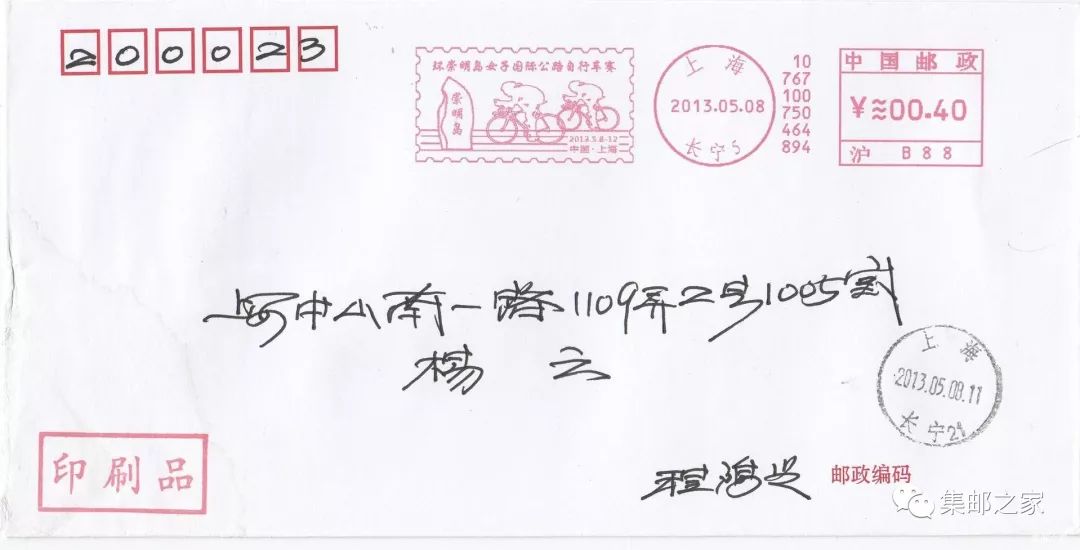 200023
环崇明岛女子国际公路自行车赛
崇明岛
2013.5.8-12
中国·上海
上海
2013.05.08
长宁5
10
767
100
750
464
894
中国邮政
¥≈00.40
沪 B88
上海中山南一路1109弄2号1005室
杨云
上海
2013.05.08.11
长宁
印刷品
程
邮政编码
集邮之家